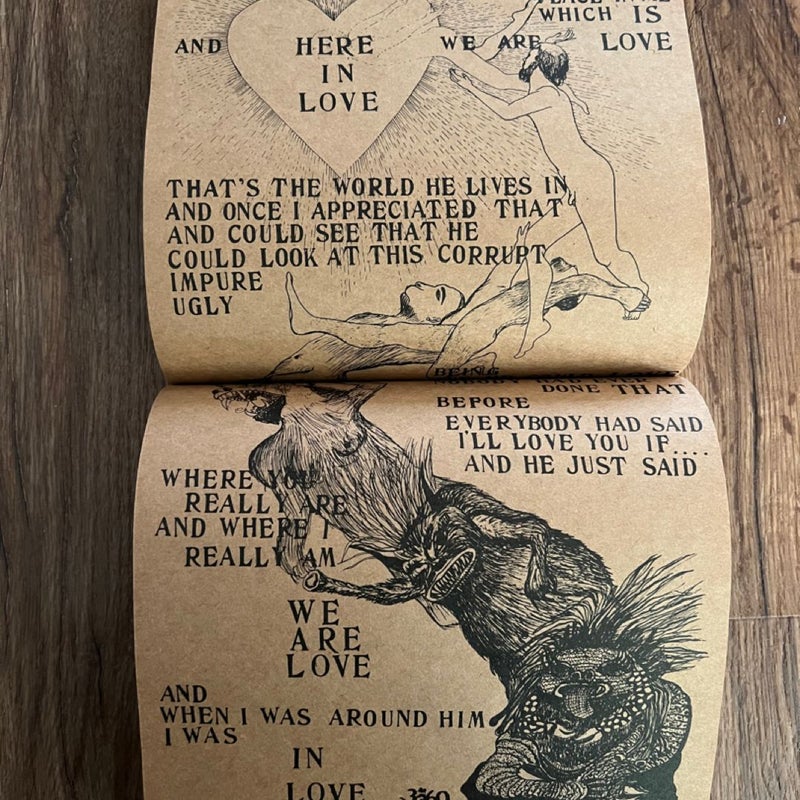 WHICH IS
AND HERE WE ARE LOVE
IN
LOVE
THAT'S THE WORLD HE LIVES IN
AND ONCE I APPRECIATED THAT
AND COULD SEE THAT HE
COULD LOOK AT THIS CORRUPT
IMPURE
UGLY
BEING
DONE THAT
BEFORE
EVERYBODY HAD SAID
I'LL LOVE YOU IF....
AND HE JUST SAID
WHERE YOU
REALLY ARE
AND WHERE I
REALLY AM
WE
ARE
LOVE
AND
WHEN I WAS AROUND HIM
I WAS
IN
LOVE